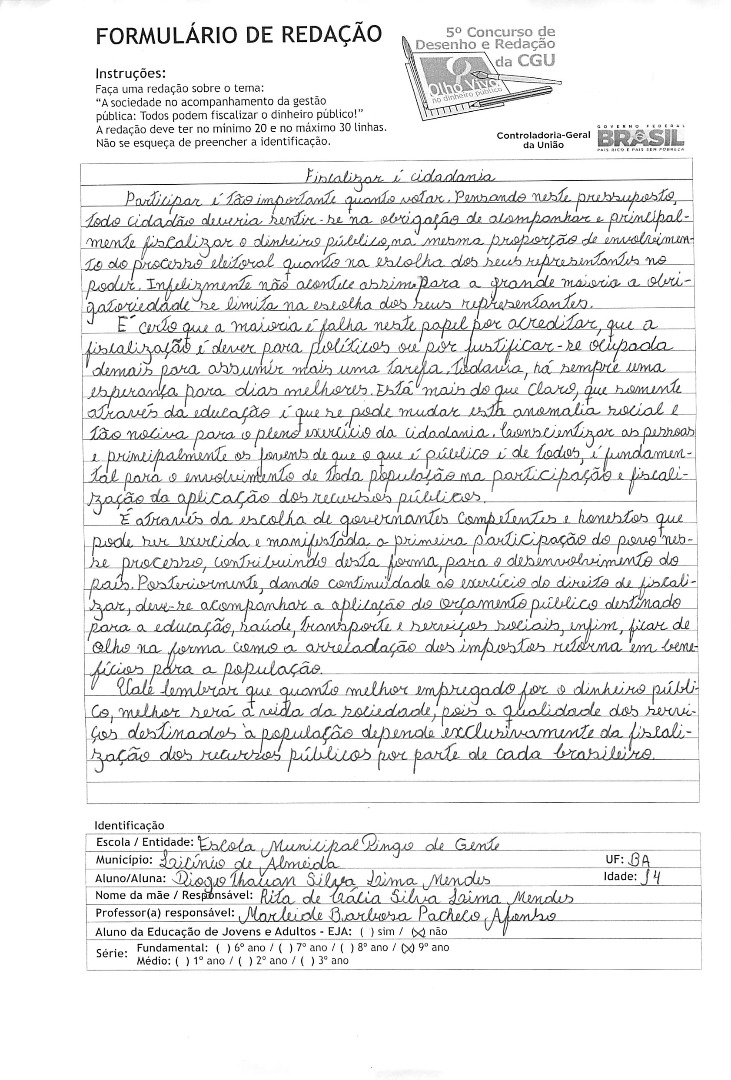 FORMULÁRIO DE REDAÇÃO
5º Concurso de
Desenho e Redação
da CGU
Olho Vivo
no dinheiro público
Instruções:
Faça uma redação sobre o tema:
“A sociedade no acompanhamento da gestão
pública: Todos podem fiscalizar o dinheiro público!”
A redação deve ter no mínimo 20 e no máximo 30 linhas.
Não se esqueça de preencher a identificação.
Controladoria-Geral
da União
GOVERNO FEDERAL
BRASIL
PAÍS RICO É PAÍS SEM POBREZA
Fiscalizar é cidadania
Participar é tão importante quanto votar. Pensando neste pressuposto,
todo cidadão deveria sentir-se na obrigação de acompanhar e principal-
mente fiscalizar o dinheiro público, na mesma proporção de envolvimen-
to do processo eleitoral quanto na escolha dos seus representantes no
poder. Infelizmente não acontece assim. Para a grande maioria a obri-
gatoriedade se limita na escolha dos seus representantes.
É certo que a maioria é falha neste papel por acreditar, que a
fiscalização é dever para políticos ou por justificar-se ocupada
demais para assumir mais uma tarefa. Todavia, há sempre uma
esperança para dias melhores. Está mais do que claro, que somente
através da educação é que se pode mudar esta anomalia social e
tão nociva para o pleno exercício da cidadania. Conscientizar as pessoas
e principalmente os jovens de que o que é público é de todos, é fundamen-
tal para o envolvimento de toda população na participação e fiscali-
zação da aplicação dos recursos públicos.
É através da escolha de governantes competentes e honestos que
pode ser exercida e manifestada a primeira participação do povo nes-
se processo, contribuindo desta forma, para o desenvolvimento do
país. Posteriormente, dando continuidade ao exercício do direito de fiscali-
zar, deve-se acompanhar a aplicação do orçamento público destinado
para a educação, saúde, transporte e serviços sociais, enfim, ficar de
olho na forma como a arrecadação dos impostos retorna em bene-
fícios para a população.
Vale lembrar que quanto melhor empregado for o dinheiro públi-
co, melhor será a vida da sociedade, pois a qualidade dos servi-
ços destinados à população depende exclusivamente da fiscali-
zação dos recursos públicos por parte de cada brasileiro.
Identificação
Escola / Entidade: Escola Municipal Pingo de Gente
Município: Licínio de Almeida UF: BA
Aluno/Aluna: Diogo Thauan Silva Lima Mendes Idade: 14
Nome da mãe / Responsável: Rita de Cácia Silva Lima Mendes
Professor(a) responsável: Marleide Barbosa Pacheco Afonso
Aluno da Educação de Jovens e Adultos - EJA: ( ) sim / (X) não
Série: Fundamental: ( ) 6º ano / ( ) 7º ano / ( ) 8º ano / (X) 9º ano
Médio: ( ) 1º ano / ( ) 2º ano / ( ) 3º ano